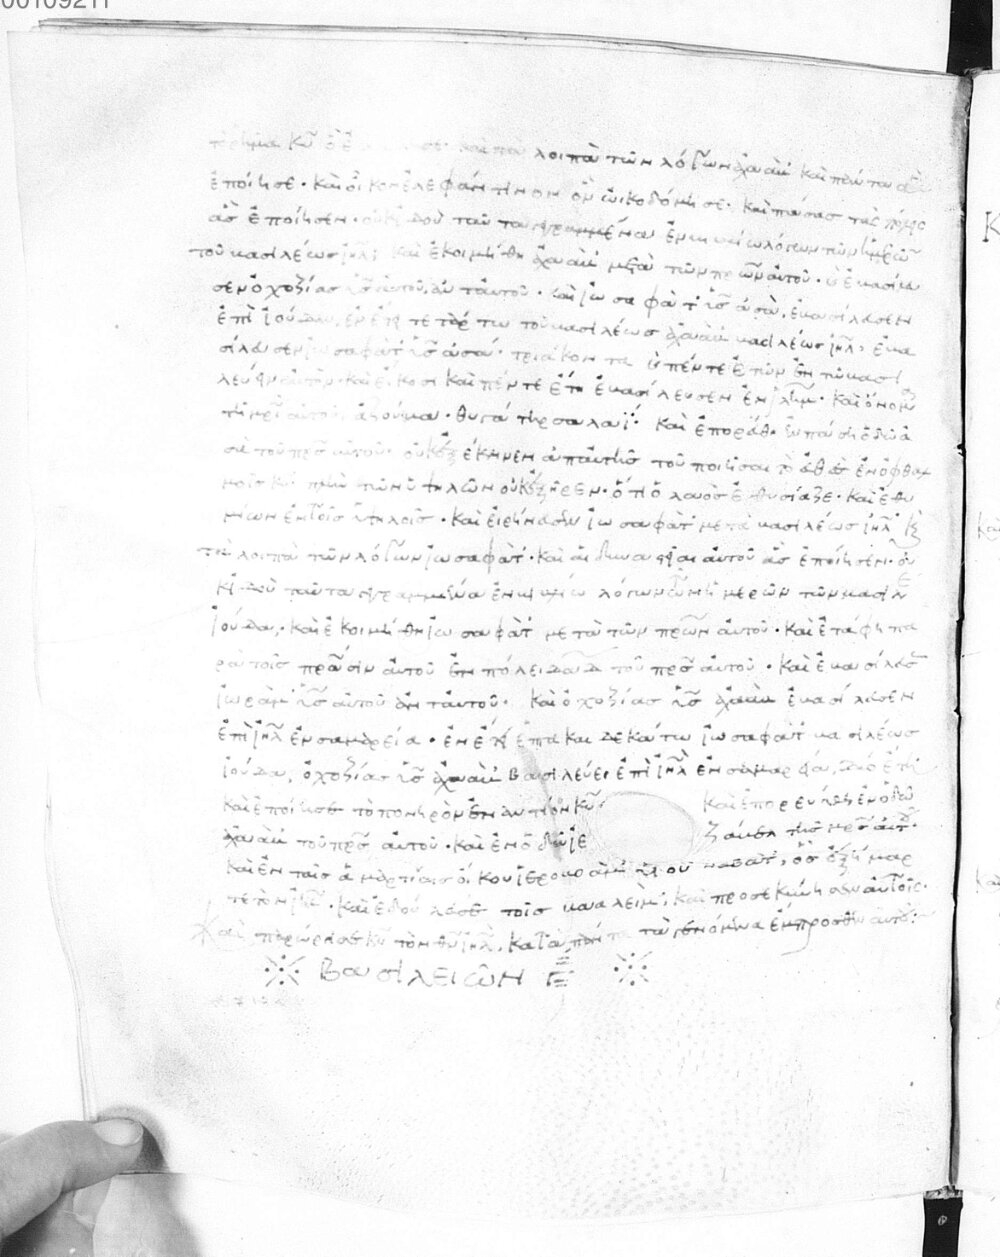 00109211
λοιπὰ τῶν λόγων ἀχαὰβ καὶ πάντα ἃ
ἐποίησε· καὶ οἶκον ἐλεφάντινον ὃν ὠικοδόμησε· καὶ πάσας τὰς πόλεις
ἃς ἐποίησεν· οὐκ ἰδοὺ ταῦτα γεγραμμένα ἐν βιβλίω λόγων τῶν ἡμερῶν
τοῦ βασιλέως ιηλ· καὶ ἐκοιμήθη ἀχαὰβ μετὰ τῶν πρων αὐτοῦ· καὶ ἐβασίλευ
σεν ὀχοζίας υς αὐτοῦ ἀντ αὐτοῦ· καὶ ἰωσαφὰτ υς ἀσὰ, ἐβασίλευσεν
ἐπὶ ἰούδαν, ἐν ἔτη τετάρτω τοῦ βασιλέως ἀχαὰβ βασιλέως ιηλ, ἐβα
σίλευσεν ἰωσαφὰτ υς ἀσά· τριάκοντα καὶ πέντε ἐτῶν ἐν τῶ βασι
λεύειν αὐτὸν· καὶ εἴκοσι καὶ πέντε ἔτη ἐβασίλευσεν ἐν ιλημ· καὶ ὄνομα
τῆ μρι αὐτοῦ ἀζουβα· θυγάτηρ σαλαΐ· καὶ ἐπορεύθη ἐν πάση ὁδῶ ἀ
σὰ τοῦ πρς αὐτοῦ· οὐκ ἐξέκλινεν ἀπ αὐτῆς τοῦ ποιῆσαι τὸ εὐθὲς ἐν ὀφθαλ
μοῖς κυ πλὴν τῶν ὑψηλῶν οὐκ ἐξῆρεν· ὅτι ὁ λαὸς ἐθυσίαζε· καὶ ἐθυ
μίων ἐν τοῖς ὑψηλοῖς· καὶ εἰρήνευσεν ἰωσαφὰτ μετὰ βασιλέως ιηλ καὶ
τὰ λοιπὰ τῶν λόγων ἰωσαφὰτ· καὶ αἱ δυναστεῖαι αὐτοῦ ἃς ἐποίησεν· οὐ
κ ἰδοὺ ταῦτα γεγραμμένα ἐν βιβλίω λόγων τῶν ἡμερῶν τῶν βασιλέ
ἰούδα· καὶ ἐκοιμήθη ἰωσαφὰτ μετὰ τῶν πρων αὐτοῦ· καὶ ἐτάφη πα
ρὰ τοῖς πρασιν αὐτοῦ ἐν πόλει δαδ τοῦ πρς αὐτοῦ· καὶ ἐβασίλευσεν
ἰωρὰμ υς αὐτοῦ ἀντ αὐτοῦ· καὶ ὀχοζίας υς ἀχαὰβ ἐβασίλευσεν
ἐπὶ ιηλ ἐν σαμαρεία· ἐν ἔτει ἑπτακαιδεκάτω ἰωσαφὰτ βασιλέως
ἰούδα, ὀχοζίας υς ἀχαὰβ βασιλεύει ἐπὶ ιηλ ἐν σαμαρεία, δύο ἔτη
καὶ ἐποίησε τὸ πονηρὸν ἐναντίον κυ· καὶ ἐπορεύθη ἐν ὁδῶ
ἀχαὰβ τοῦ πρς αὐτοῦ· καὶ ἐν ὁδῶ ἰε ζάβελ τῆς μρς αὐτοῦ·
καὶ ἐν ταῖς ἁμαρτίαις οἴκου ἱεροβοὰμ υἱοῦ ναβατ, ὃς ἐξήμαρ
τε τὸν ιηλ· καὶ ἐδούλευσε τοῖς βααλείμ, καὶ προσεκύνησεν αὐτοῖς·
καὶ παρώργισε κν τὸν θν ιηλ, κατὰ πάντα τὰ γενόμενα ἔμπροσθεν αὐτοῦ
Βασιλειῶν